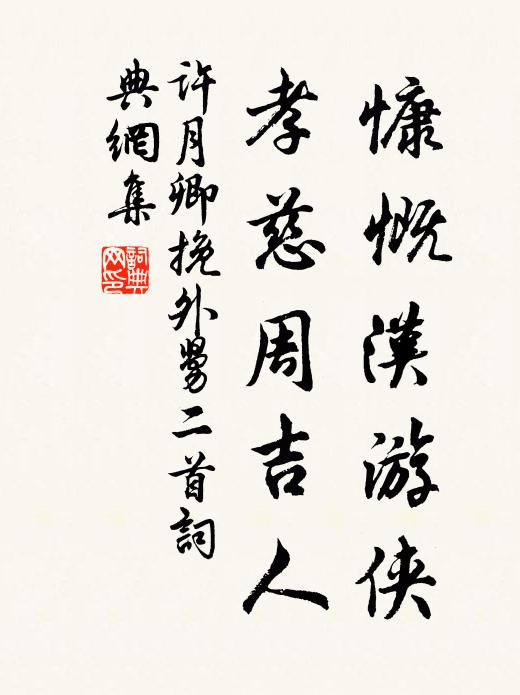 慷慨漢游俠
孝慈周吉人
許月卿挽外舅二首詞
典網集
詞典
网印